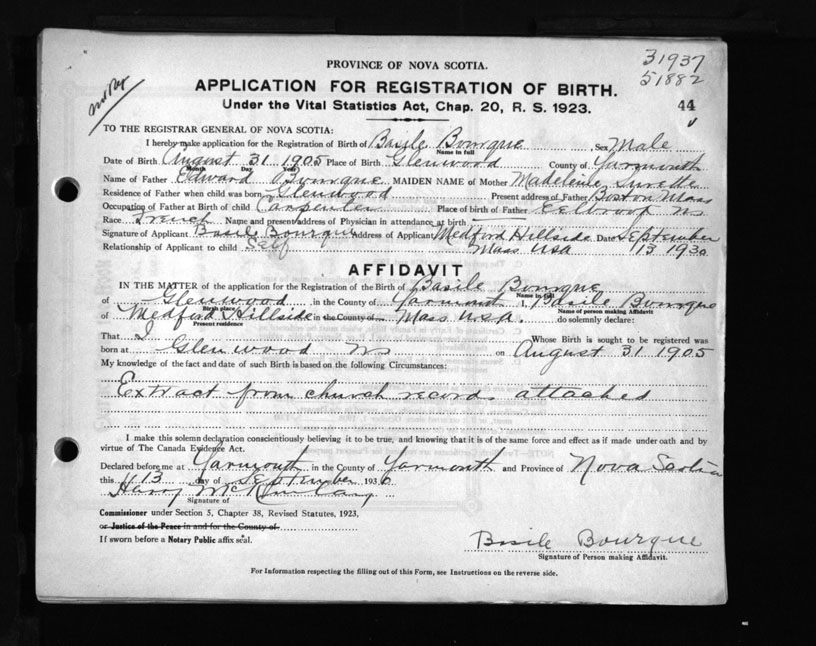 PROVINCE OF NOVA SCOTIA.
31937
51882
APPLICATION FOR REGISTRATION OF BIRTH.
Under the Vital Statistics Act, Chap. 20, R. S. 1923.
44
TO THE REGISTRAR GENERAL OF NOVA SCOTIA:
I hereby make application for the Registration of Birth of Basile Bourque Sex Male
Name in full
Date of Birth August 31 1905 Place of Birth Glenwood County of Yarmouth
Month Day Year
Name of Father Edward Bourque MAIDEN NAME of Mother Madeleine Surette
Residence of Father when child was born Glenwood Present address of Father Boston Mass
Occupation of Father at Birth of child Carpenter Place of birth of Father Eelbrook NS
Race French Name and present address of Physician in attendance at birth
Signature of Applicant Basile Bourque Address of Applicant Medford Hillside Date September
Relationship of Applicant to child Self Mass USA 13 1930
AFFIDAVIT
IN THE MATTER of the application for the Registration of the Birth of Basile Bourque
Name in full
of Glenwood in the County of Yarmouth I, Basile Bourque
Birth place Name of person making Affidavit
of Medford Hillside in the County of Mass U.S.A. do solemnly declare:
Present residence
That I Whose Birth is sought to be registered was
born at Glenwood NS on August 31 1905
My knowledge of the fact and date of such Birth is based on the following Circumstances:
Extract from church records attached
I make this solemn declaration conscientiously believing it to be true, and knowing that it is of the same force and effect as if made under oath and by
virtue of The Canada Evidence Act.
Declared before me at Yarmouth in the County of Yarmouth and Province of Nova Scotia
this 13 day of September 1930
Harry
Signature of
Commissioner under Section 5, Chapter 38, Revised Statutes, 1923,
or Justice of the Peace in and for the County of
If sworn before a Notary Public affix seal.
Basile Bourque
Signature of Person making Affidavit.
For Information respecting the filling out of this Form, see Instructions on the reverse side.